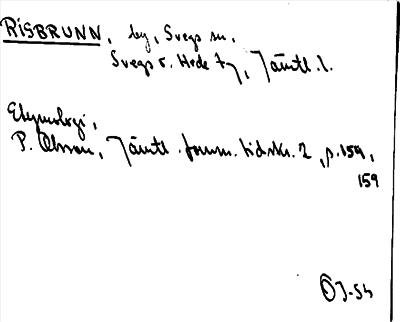 RISBRUNN, by, Svegs sn,
Svegs o. Hede tg, Jämtl. l.
Etymologi,
P. Olsson, Jämtl. fornm. tidskr. 2, p. 159,
159
ÖJ-54